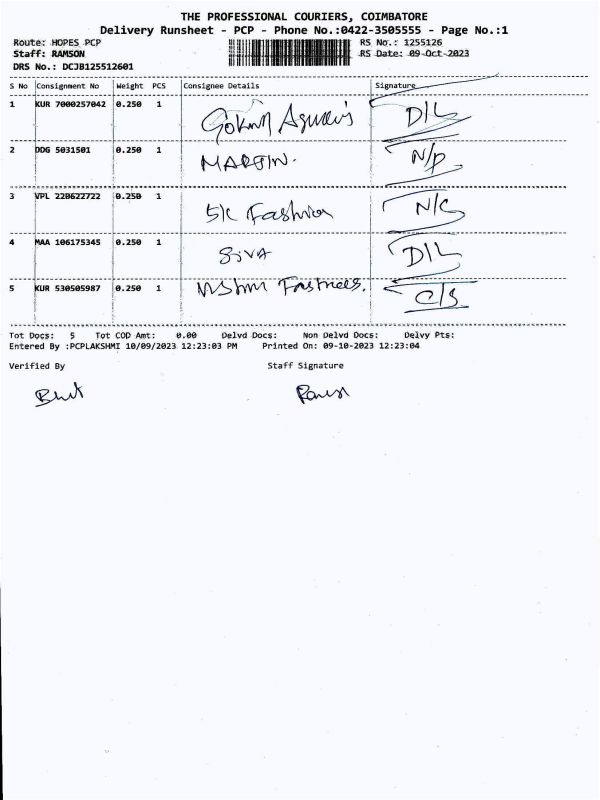 THE PROFESSIONAL COURIERS, COIMBATORE
Delivery Runsheet - PCP - Phone No.:0422-3505555 - Page No.:1
Route: HOPES PCP RS No.: 1255126
Staff: RAMSON RS Date: 09-Oct-2023
DRS No.: DCJB125512601
S No Consignment No Weight PCS Consignee Details Signature
1 KUR 7000257042 0.250 1 D/L
2 DDG 5031501 0.250 1 MARTIN. N/P
3 VPL 220622722 0.250 1 SK Fashion N/S
4 MAA 106175345 0.250 1 SIVA D/L
5 KUR 530505987 0.250 1 C/S
Tot Docs: 5 Tot COD Amt: 0.00 Delvd Docs: Non Delvd Docs: Delvy Pts:
Entered By :PCPLAKSHMI 10/09/2023 12:23:03 PM Printed On: 09-10-2023 12:23:04
Verified By Staff Signature